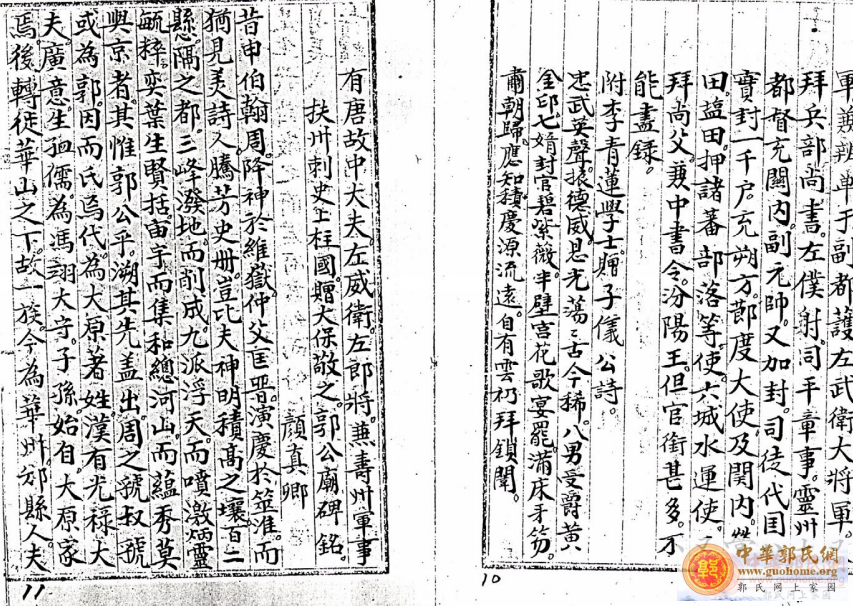 軍兼辨單于副都護左武衛大將軍。
拜兵部尚書。左僕射。司平章事。靈州
都督充關内。副元帥。又加封。司徒代国
實封一千户。充朔方。節度大使及関内。
田。鹽田。押諸蕃部落等。使。六城水運使。
拜尚父。兼中書令。汾陽王。但官銜甚多。不
能盡錄。
附李青蓮學士。贈子儀公詩。
忠武英聲。振德威。恩光蕩〻古今稀。八男受爵黄
金印。七婿封官碧紫薇。半壁宫花歌宴罷。滿床牙笏。
肅朝歸。應知積慶源流遠。自有雲礽拜鎖闈。
10
有唐故中大夫。左威衛左郎將。兼壽州軍事
扶州刺史上柱國。贈大保敬之。郭公廟碑銘。
顔真卿
昔申伯翰周。降神於維嶽。仲父匡晋。演慶於筮淮。而
猶見美詩人。騰芳史册。豈比夫神明積髙之壤。百二
縣隔之都。三峰潑地。而削成。九派浮天。而噴激。炳靈
毓粹。奕葉生賢。括宙宇。而集和。總河山。而蘊秀。莫
與京者。其惟郭公乎。溯其先盖出。周之虢叔。虢
或為郭。因而氏焉。代為大原著姓。漢有光禄大
夫廣意生孤儒。為馮翊大守。子孫。始自。大原家
焉。後轉徙華山之下。故一族。今為華州鄭縣人。夫
11
中華郭氏網
www.guohome.org
郭氏网上家园